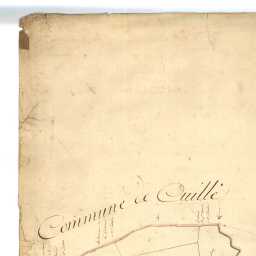 Commune de Ouillé